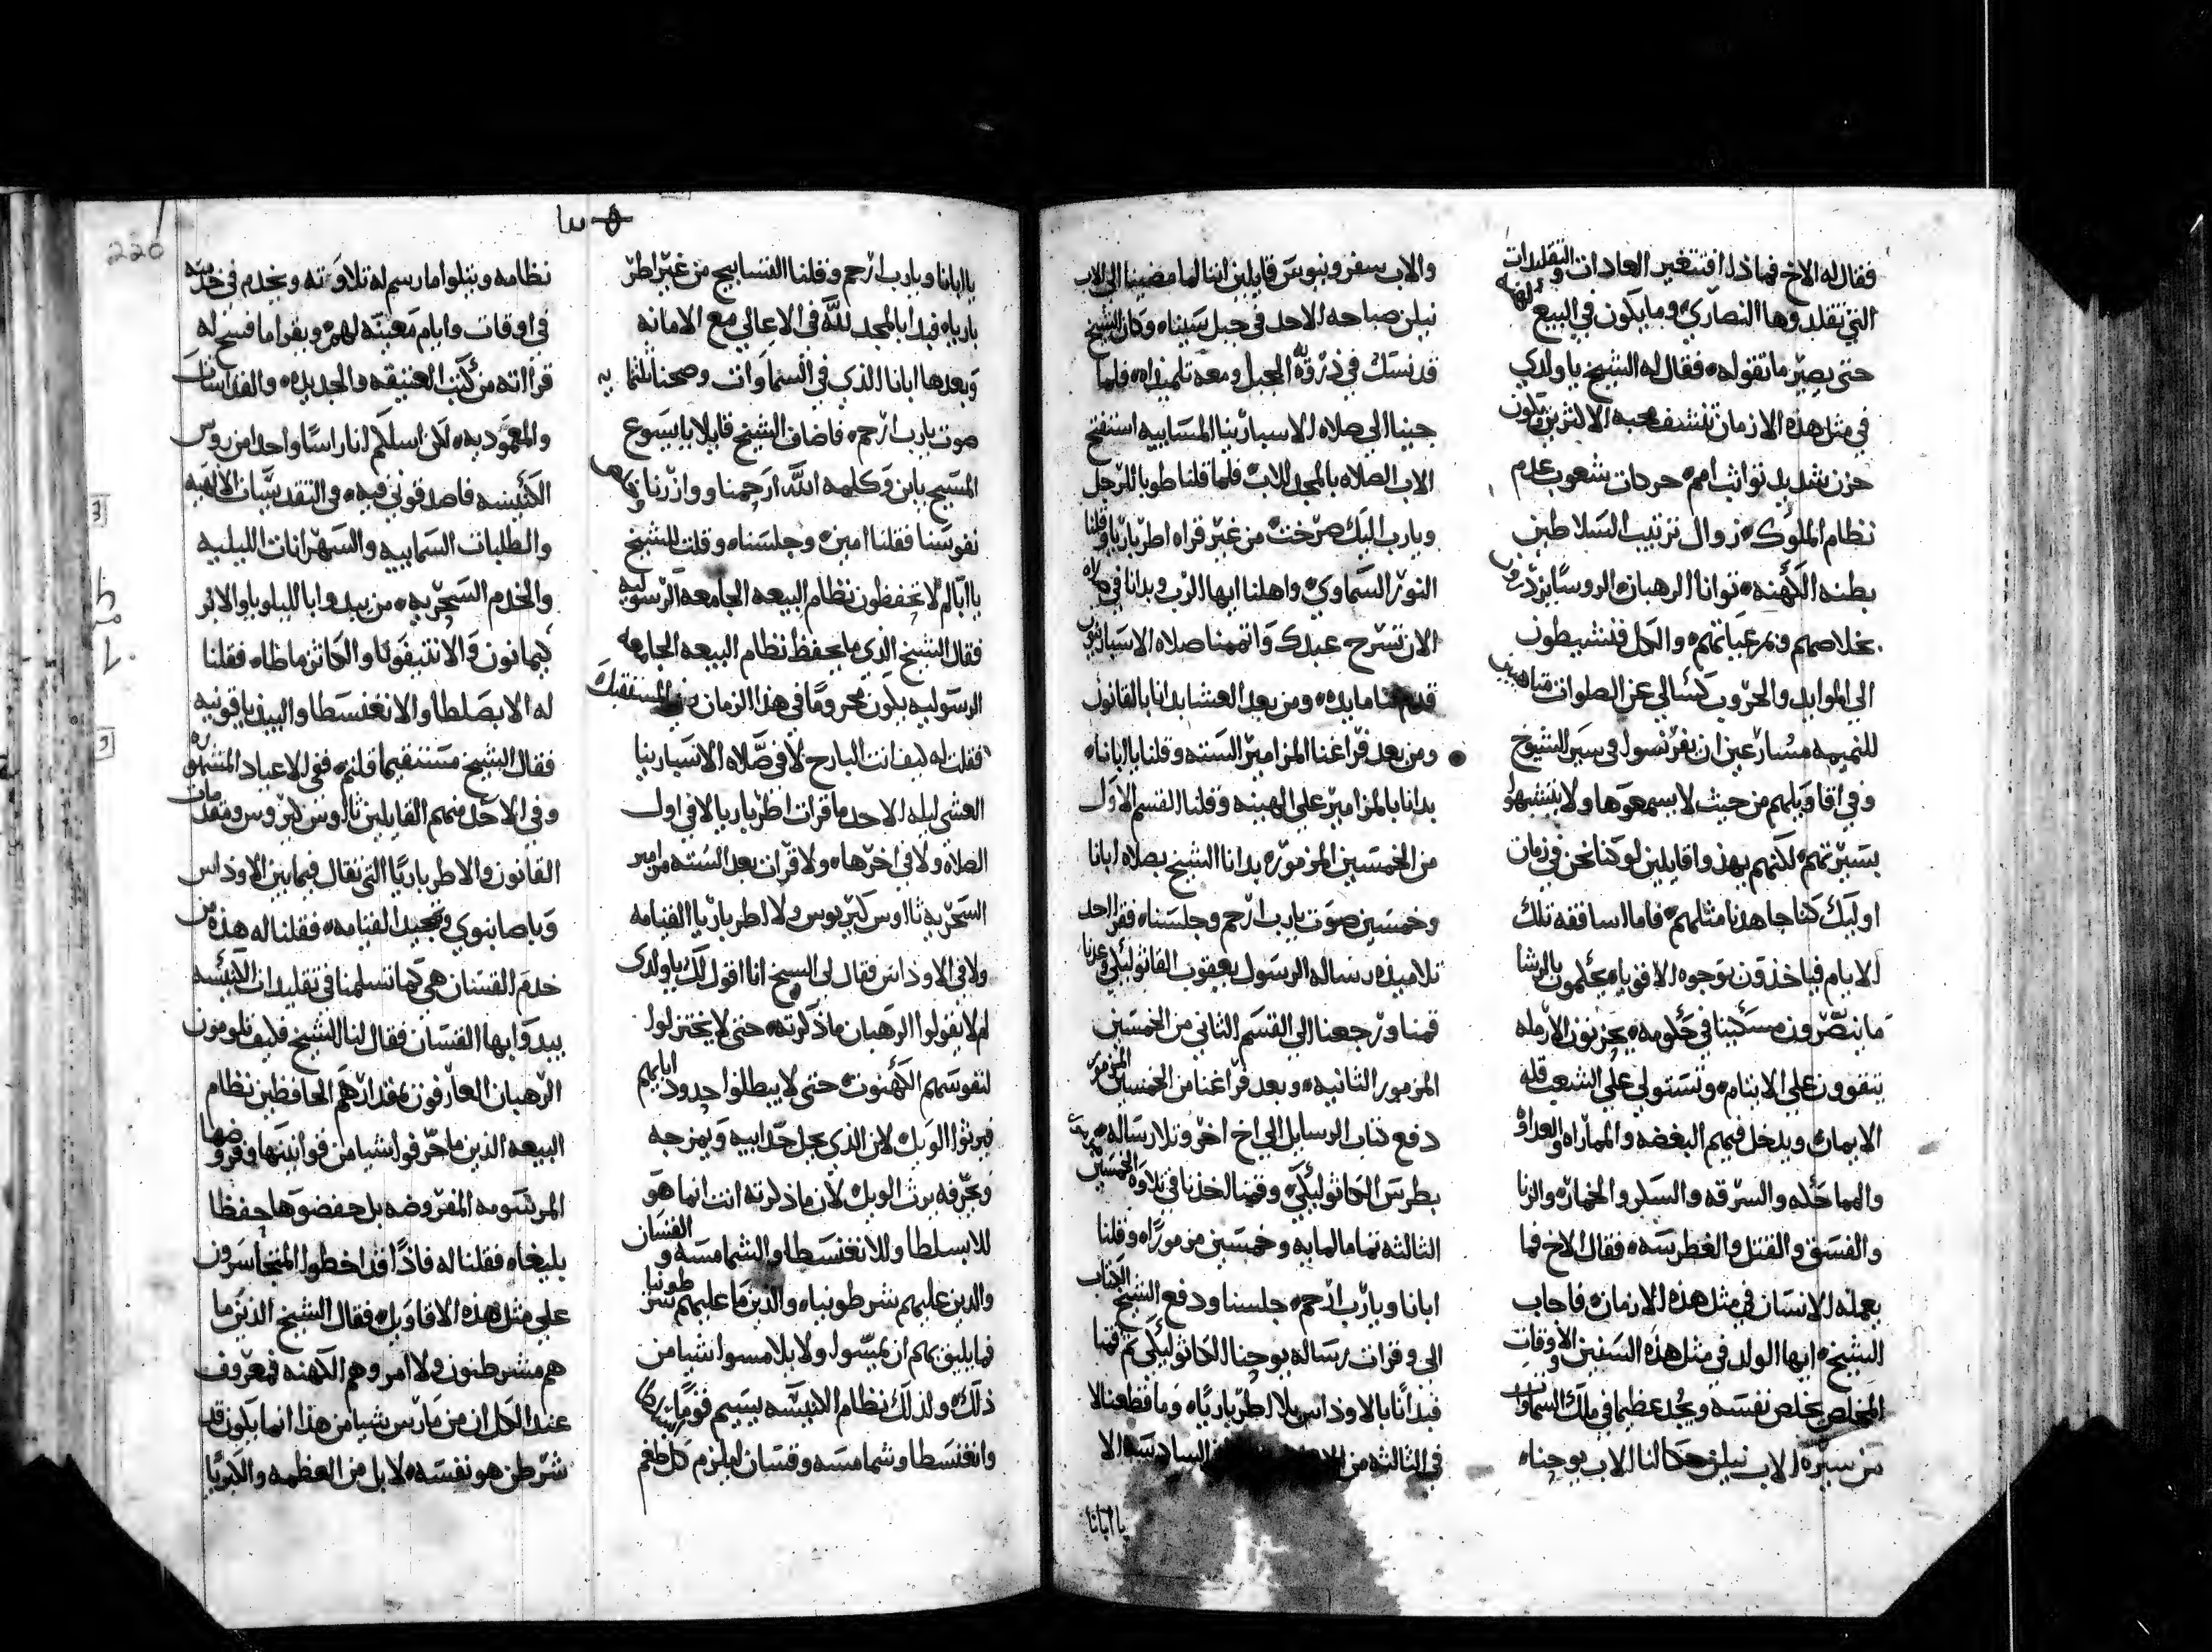 فقال له الاخ فماذا افتتغير العادات والتقليدات
التي تقلدوها النصاري وما يكون في البيع
حتي يصير ما تقوله فقال له الشيخ يا ولدي
في مثل هذه الازمان تنشف محبه الاكثرين ويكون
حزن شديد تواثب امم حردات شعوب عدم
نظام الملوك زوال ترتيب السلاطين
بطنه الكهنه توانا الرهبان الروسا
بخلاصهم ونمر عياتهم والكل فنشيطون
الي الموايد والحروب كسالي عن الصلوات
للنميمه مسارعين ان يفر نسول في سير الشيوخ
وفي اقاويلهم من حيث لا يسمعوها ولا يتشبهوا
بسيرتهم لكنهم يهذوا قايلين لو كنا نحن في زمان
اوليك كنا جاهدنا مثلهم فاما اساقفه تلك
الايام فياخذون بوجوه الاقويا يحكمون بالرشا
ما ينصرون مسكينا في حكومه يحزنون الارمله
يتقوون علي الايتام وتستولي علي الشعب قله
الايمان ويدخل فيهم البغضه والمماراه والعداوه
والمماحكه والسرقه والسكر والخماره والزنا
والفسق والقتل والغطرسه فقال الاخ فما
يعمله الانسان في مثل هذه الازمان فاجاب
الشيخ ايها الولد في مثل هذه السنين والاوقات
المخلص يخلص نفسه ويجد عظيما في ملك السماوات
من سيره الاب نيلن حكا لنا الاب يوحنا
والاب سفرونيوس قايلين اننا لما مضينا الي الاب
نيلن صباحه الاحد في جبل سينا وكان الشيخ
قد نسك في ذروة الجبل ومعه تلميذاه فلما
جينا الي صلاه الاسبارينا المسابيه استفتح
الاب الصلاه بالمجد للاب فلما قلنا طوبا للرجل
ويارب اليك صرخت من غير قراه اطرباريا وقلنا
النور السماوي واهلنا ايها الرب وبدانا في صلاه
الان تسرح عبدك واتممنا صلاه الاسبارينون
قدم لنا مايده ومن بعد العشا بدانا بالقانون
ومن بعد فراغنا المزامير السته وقلنا يا ابانا
بدانا بالمزامير علي الهينه وقلنا القسم الاول
من الخمسين المزموره بدانا الشيخ بصلاه ابانا
وخمسين صوت يارب ارحم وجلسنا فقرا احد
تلاميذه رساله الرسول يعقوب القاثوليكي وعدنا
قمنا ورجعنا الي القسم الثاني من الخمسين
المزمور الثانيه وبعد فراغنا من الخمسين المزمور
دفع كتاب الرسايل الي اخ اخر وتلا رساله
بطرس الكاثوليكي وقمنا اخذنا في تلاوة الخمسين
الثالثه تماما لمايه وخمسين مزمورا وقلنا
ابانا ويارب ارحم جلسنا ودفع الشيخ الكتاب
الي وقرات رساله يوحنا الكاثوليكي ثم قمنا
فبدانا بالاوذاس بلا اطرباريا وما قطعنا لا
في الثالثه من السادسه الا
يا ابانا
يا ابانا ويارب ارحم وقلنا التسابيح من غير اطر
بارياه فبدا بالمجد لله في الاعالي مع الامانه
وبعدها ابانا الذي في السماوات وصحنا ثلثمايه
صوت يارب ارحم فاضاف الشيخ قايلا يا يسوع
المسيح يا بن وكلمه الله ارحمنا ووازرنا
نفوسنا فقلنا امين وجلسنا وقلت للشيخ
يا ابا لم لا تحفظون نظام البيعه الجامعه الرسوليه
فقال الشيخ الذي ما يحفظ نظام البيعه الجامعه
الرسوليه يكون محروما في هذا الزمان
فقلت له كيف انت البارح لا في صلاه الاسبارينا
العشي ليله الاحد ما قرات اطرباريا لا في اول
الصلاه ولا في اخرها ولا قرات بعد السته مزامير
السحريه ثااوس كيريوس ولا اطرباريا القيامه
ولا في الاوذاس فقال لي الشيخ انا اقول لك يا ولدي
لم لا يقولوا الرهبان ما ذكرته حتي لا يختزلوا
لنفوسهم الكهنوت حتي لا يبطلوا حدود ابايهم
فيرثوا الويل لان الذي يحل حد ابيه ويمزجه
ويحرفه يرث الويل لان ما ذكرته انت انما هو
للابسلطا وللانغنسطا والشمامسه والقسان
والذين عليهم شرطونياه والذين ما عليهم شرطونيا
فما يليق بهم ان يمسوا ولا يلامسوا شيا من
ذلك ولذلك نظام الكنيسه يسيم قوما
وانغنسطا وشمامسه وقسان ليلزم كل طغم
نظامه ويتلوا ما رسم له تلاوته ويخدم في خدمته
في اوقات وايام معينه لهم ويقرا ما فسح له
قرااته من كتب العتيقه والجديده والقداسات
والمعموديه لان اسلم انا راسا واحدا من روس
الكنيسه فاصدقوني فيه وفي التقديسات الالهيه
والطلبات المسابيه والسهرانات الليليه
والخدم السحريه من يبدوا باالليلويا والابر
كيمانون والانتيفونا والكاثزماطاه فقلنا
له الابصلطا والانغنسطا والبيذياقونيه
فقال الشيخ مستقيما قلتم ففي الاعياد المشهوره
وفي الاحد منهم القايلين ثااوس كيريوس ومقدمات
القانون والاطرباريا التي تقال فيما بين الاوذاس
وباصابنوي وتمجيد القيامه فقلنا له هذه من
خدم القسان هي كما تسلمنا في تقليدات الكنيسه
يبدوا بها القسان فقال لنا الشيخ فكيف تلومون
الرهبان العارفون بمقدارهم الحافظين نظام
البيعه الذين ما حرفوا شيا من قوانينها وفروضها
المرسومه المفروضه بل حفضوها حفظا
بليغاه فقلنا له فاذا قد اخطوا المتجاسرون
علي مثل هذه الاقاويل فقال الشيخ الذين ما
هم مشرطنون ولا امر وهم الكهنه فمعروف
عند الكل ان من مارس شيا من هذا انما يكون قد
شرطن هو نفسه لا بل من العظمه والكبريا
220